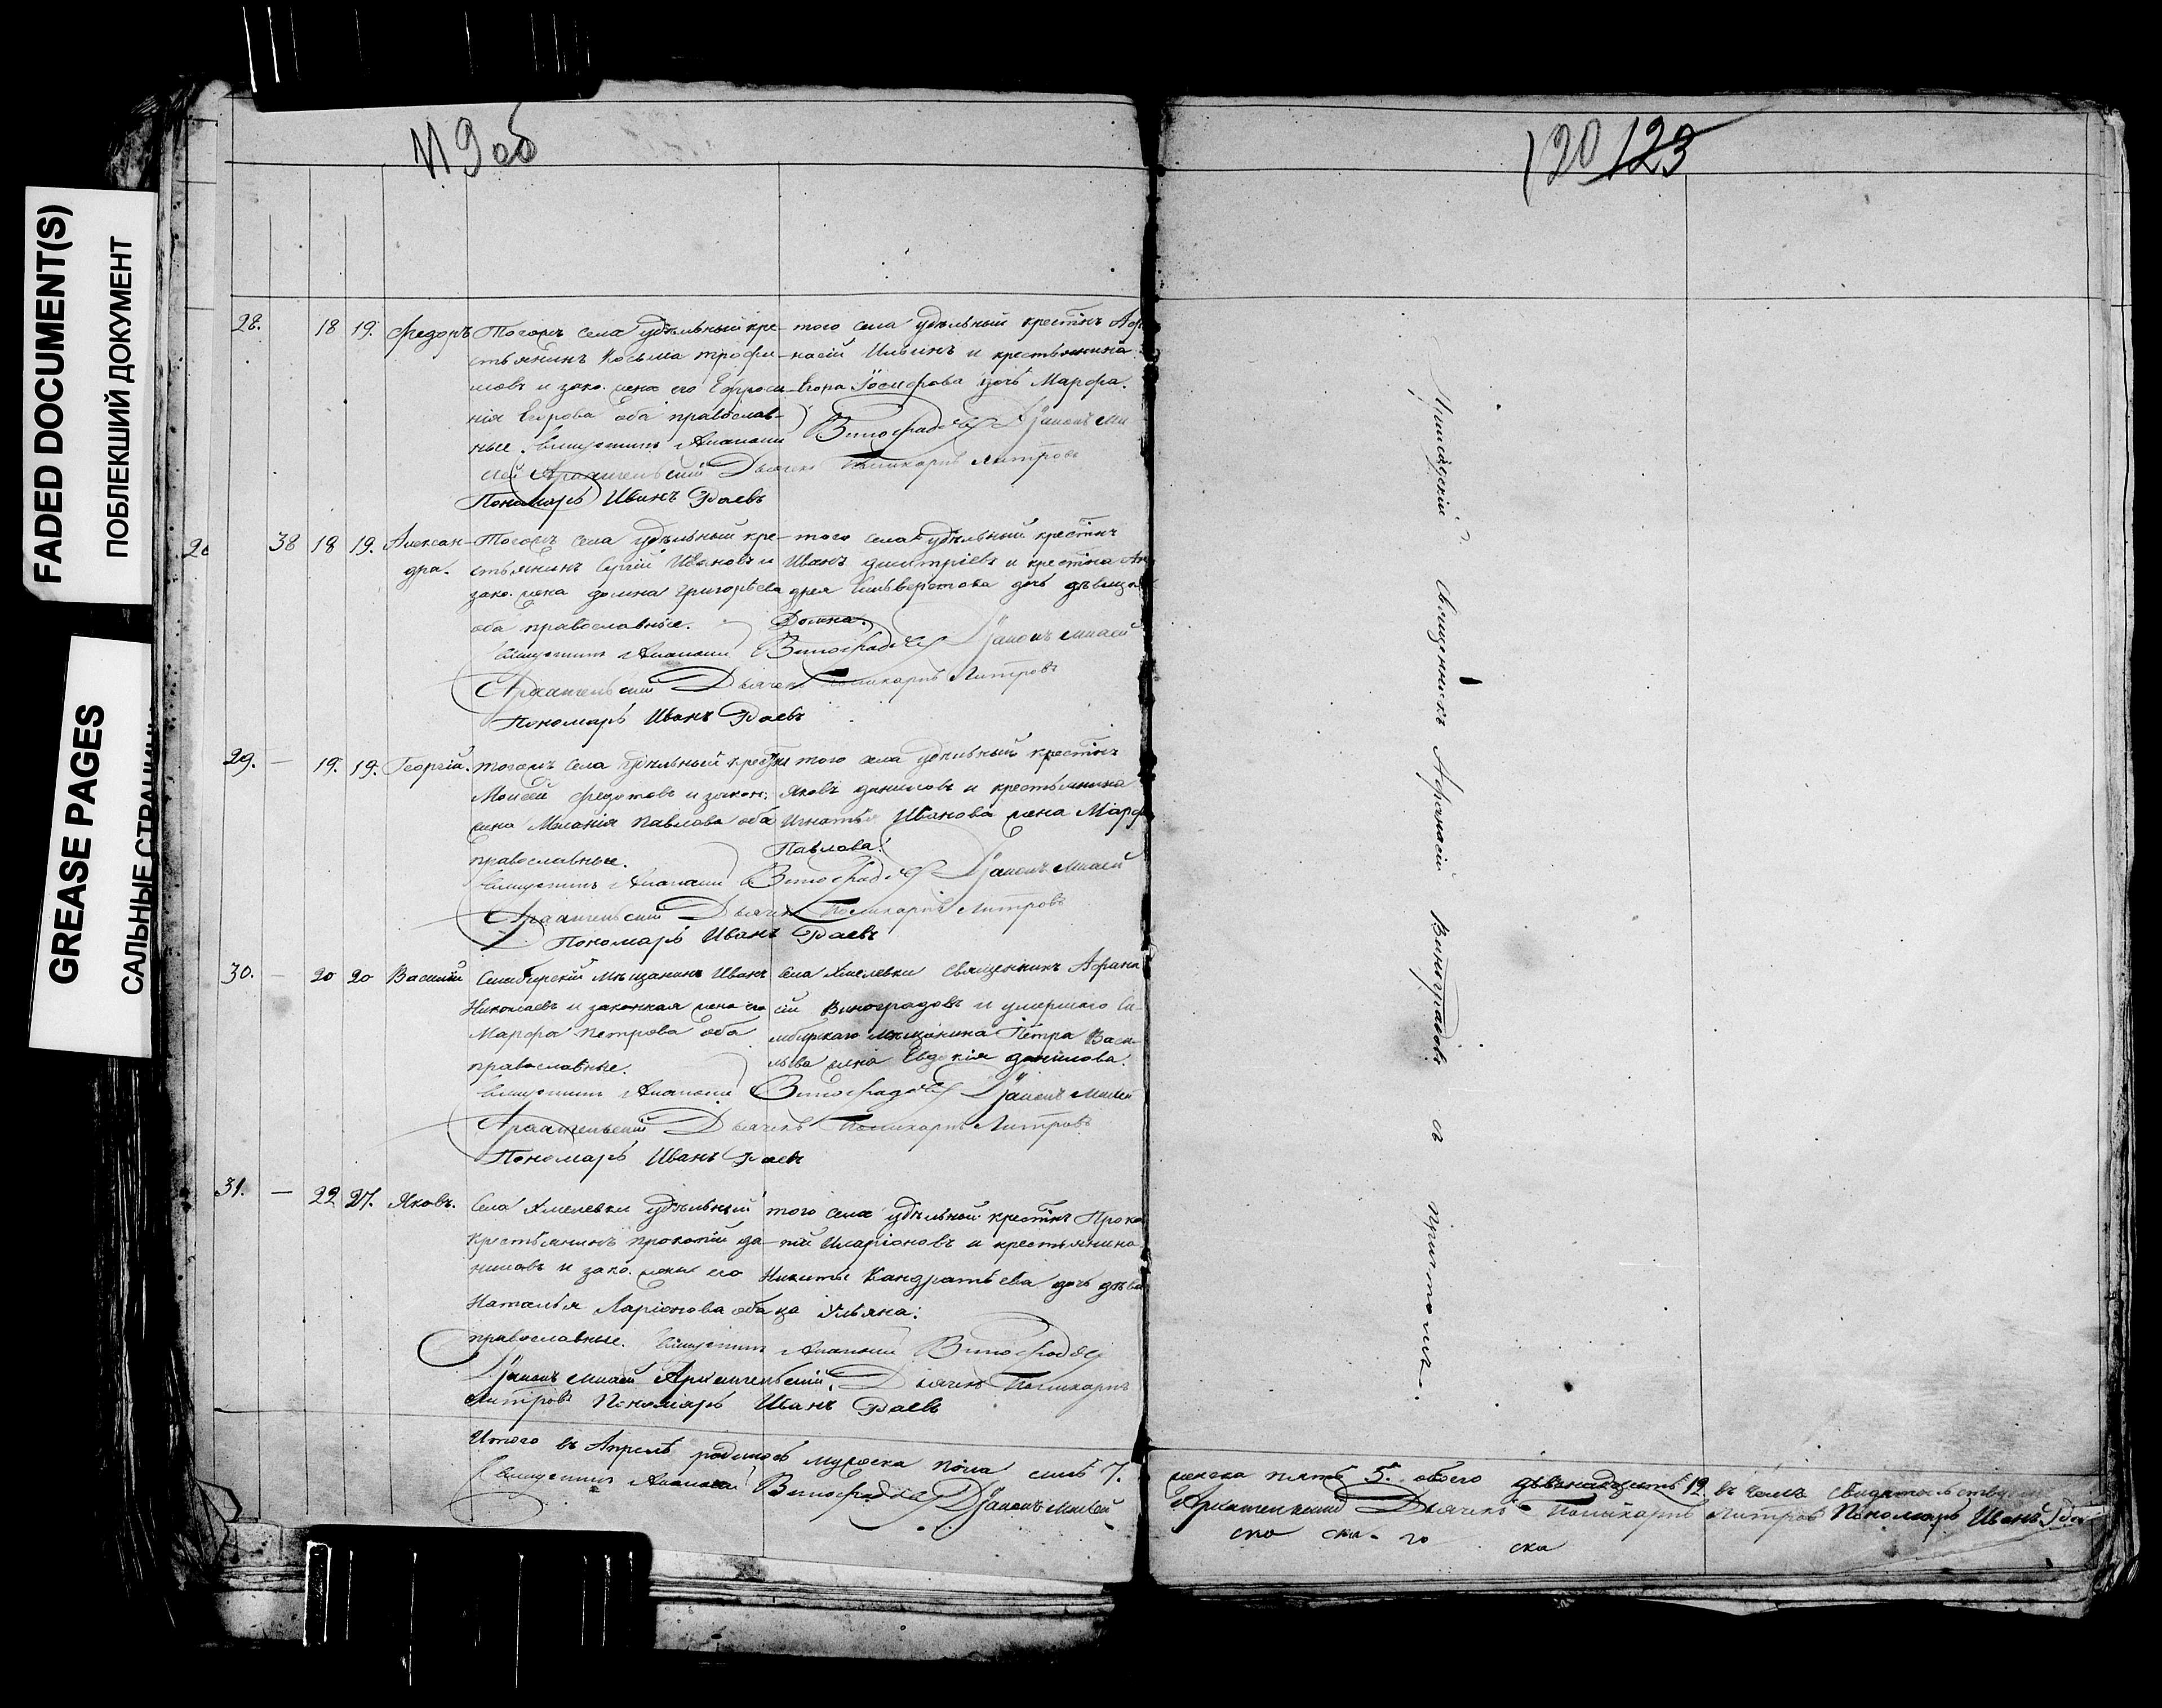 FADED DOCUMENT(S)
ПОБЛЕКШИЙ ДОКУМЕНТ
GREASE PAGES
САЛЬНЫЕ СТРАНИЦ
119 об
28. 18 19. Ѳедоръ Тогожъ села удѣльный кре-
стьянинъ Косьма Трофи-
мовъ и зако. жена его Ефроси-
нія Егорова оба православ-
ные.
того села удѣльный крестінъ Аѳа
насій Ильинъ и крестьянина
Егора Іосифова дочь Марфа.
Священникъ Аѳанасій Виноградовъ Діаконъ Ми
хей Архангельскій Дьячекъ Поликарпъ Митровъ
Пономарь Иванъ Фаевъ
38 18 19. Алексан-
дра.
Тогожъ села удѣльный кре-
стьянинъ Сергій Ивановъ и
зако. жена Домна Григорьева
оба православные.
того села удѣльный крестінъ
Иванъ Дмитріевъ и крестіна Ан
дрея Сильверстова дочь дѣвица
Домна.
Священникъ Аѳанасій Виноградовъ Діаконъ Михей
Архангельскій Дьячекъ Поликарпъ Митровъ
Пономарь Иванъ Фаевъ
29. — 19. 19. Георгій. Тогожъ села удѣльный крестін
Моисей Федотовъ и закон.
жена Меланія Павлова оба
православные.
того села удѣльный крестінъ
Яковъ Даниловъ и крестьянина
Игнатья Иванова жена Марф
Павлова.
Священникъ Аѳанасій Виноградовъ Діаконъ Михей
Архангельскій Дьячекъ Поликарпъ Митровъ
Пономарь Иванъ Фаевъ
30. — 20 20 Василій Симбирскій мѣщанинъ Иванъ
Николаевъ и законная жена его
Марфа Петрова оба
православные.
Села Хмелевки священникъ Аѳана
сій Виноградовъ и умершаго Си-
мбирскаго мѣщанина Петра Васи-
льева жена Евдокія Данилова.
Священникъ Аѳанасій Виноградовъ Діаконъ Михей
Архангельскій Дьячекъ Поликарпъ Митровъ
Пономарь Иванъ Фаевъ
31. — 22 27. Яковъ. Села Хмелевки удѣльный
крестьянинъ Прокопій Да-
ниловъ и зако. жена его
Наталья Ларіонова оба
православные.
того села удѣльной крестінъ Проко
пій Иларіоновъ и крестьянина
Никиты Кандратьева дочь дѣви
ца Ульяна.
Священникъ Аѳанасій Виноградовъ
Діаконъ Михей Архангельскій, Дьячекъ Поликарпъ
Митровъ Пономарь Иванъ Фаевъ
Итого въ Апрелѣ родилось мужеска пола семь 7.
Священникъ Аѳанасій Виноградовъ Діаконъ Михей
120 123
Священникъ Аѳанасій Виноградовъ съ причтомъ.
женска пять 5. обоего двѣнадцать 12 въ чемъ свидетельствуе
Архангельскій Дьячекъ Поликарпъ Митровъ Пономарь Иванъ Фае
ска